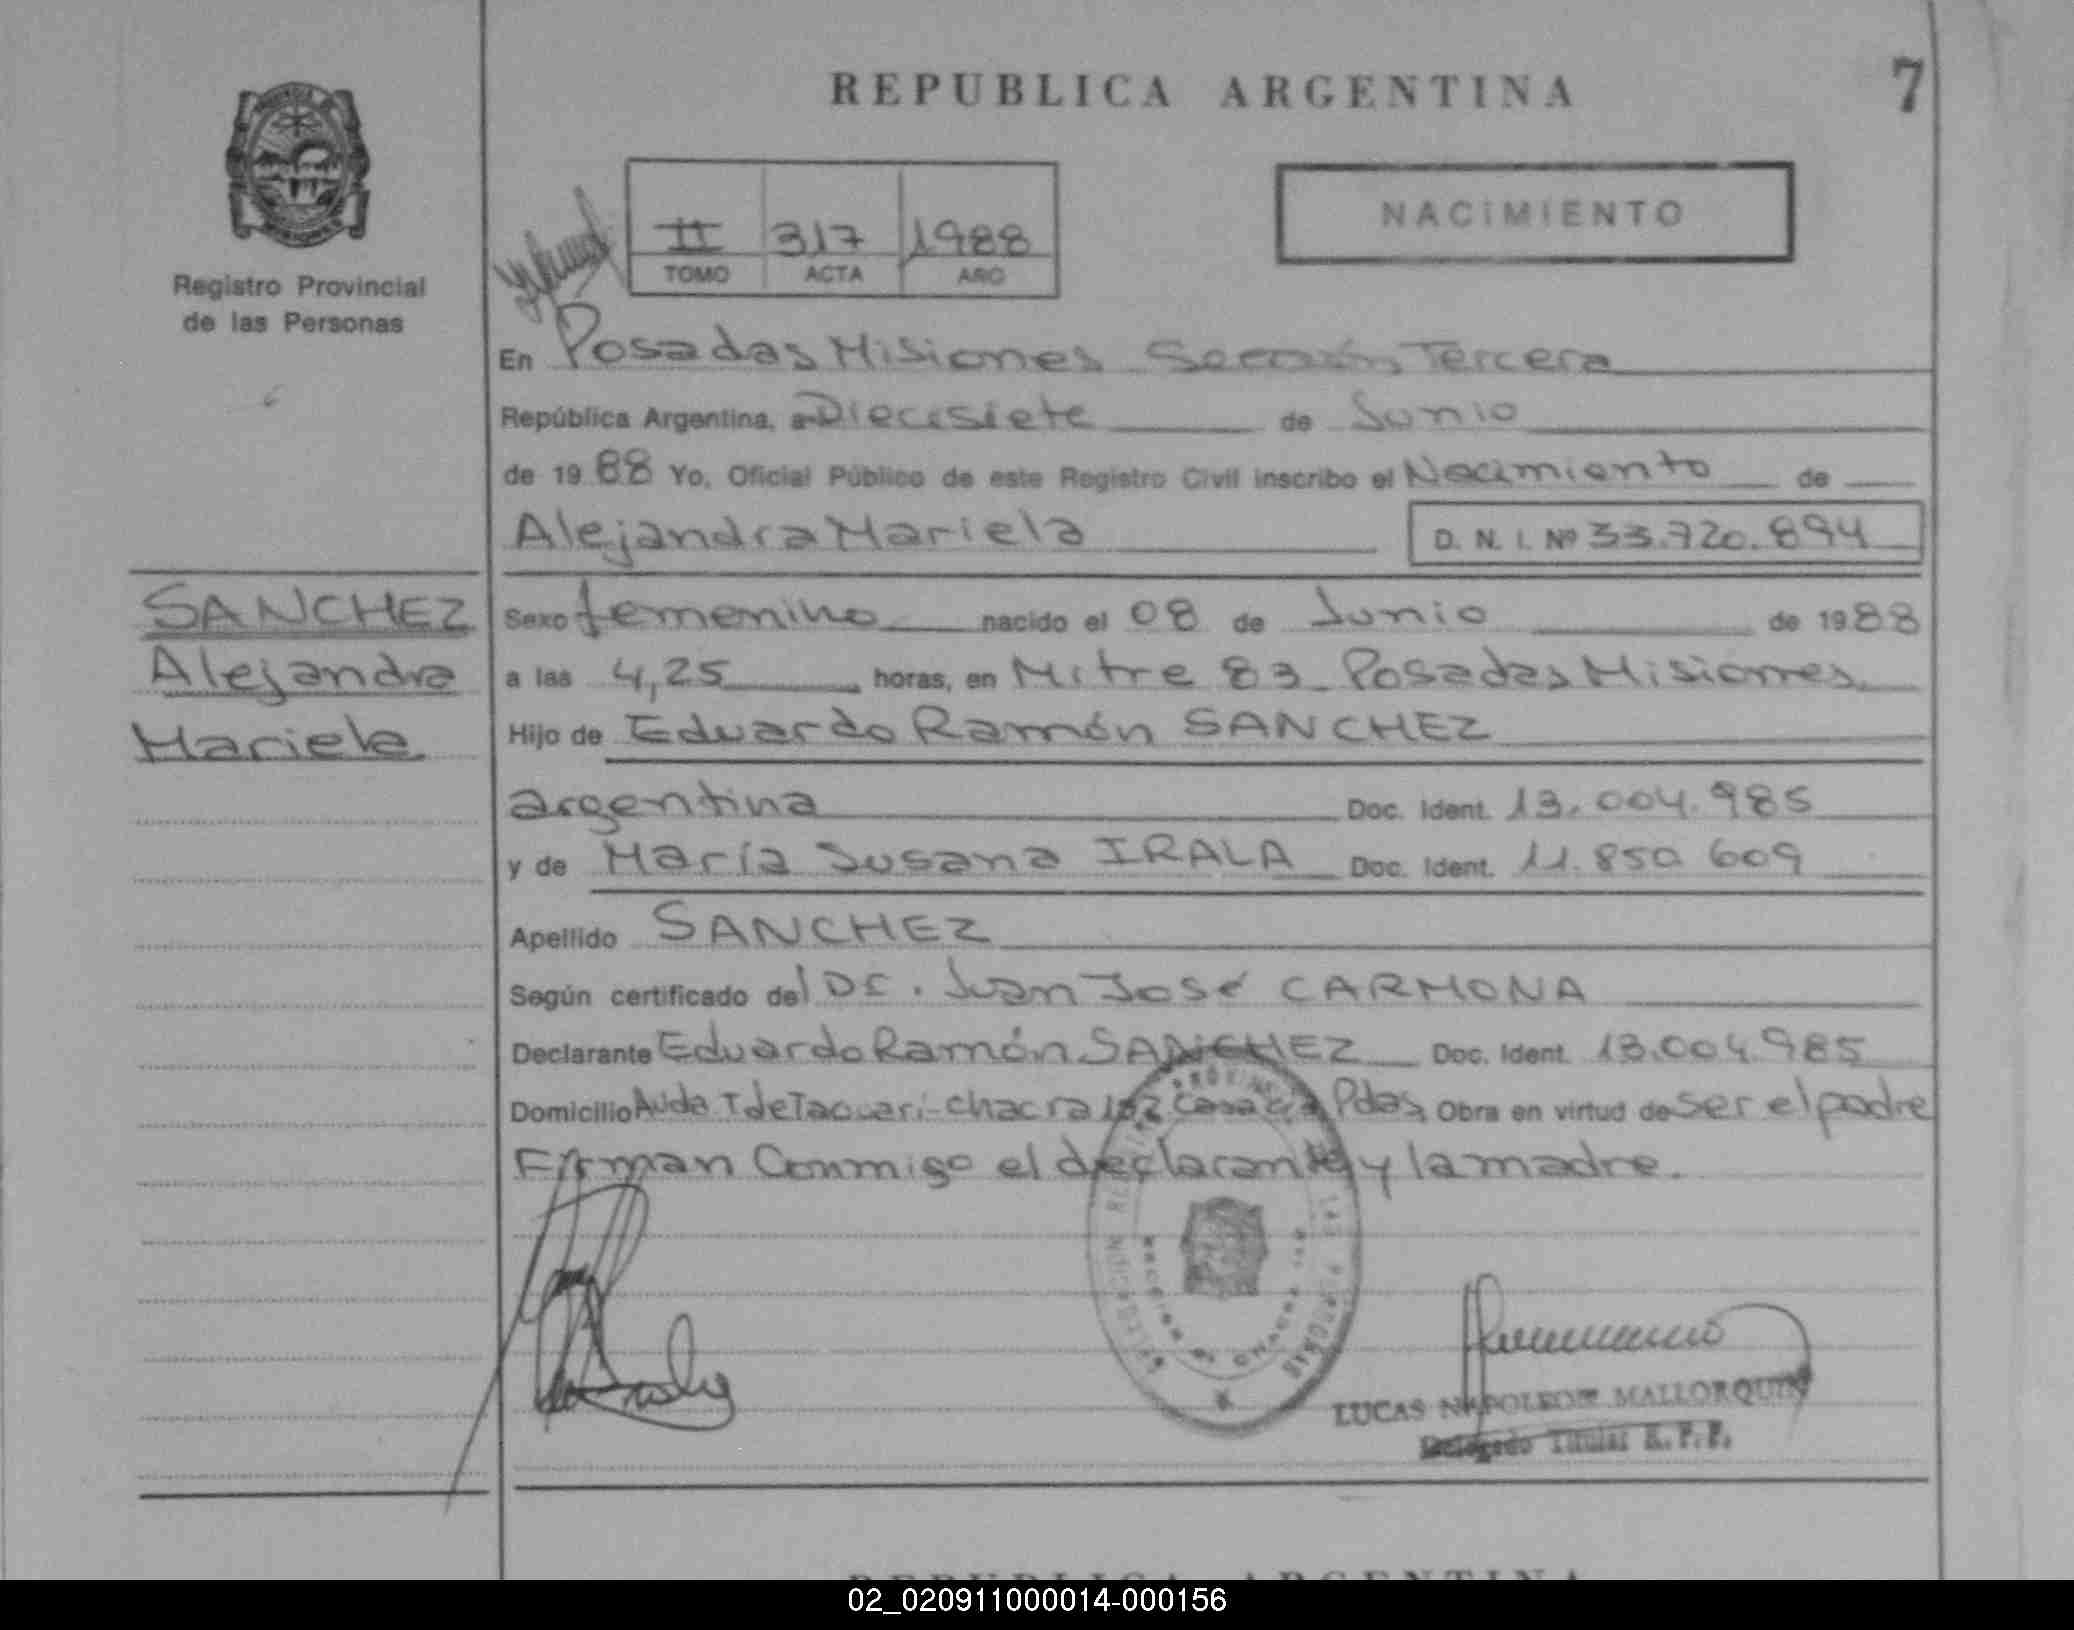 REPUBLICA ARGENTINA
7
Registro Provincial
de las Personas
II 317 1988
TOMO ACTA AÑO
NACIMIENTO
En Posadas Misiones Sección Tercera
República Argentina, a Diecisiete de Junio
de 19 88 Yo, Oficial Público de este Registro Civil inscribo el Nacimiento de
Alejandra Mariela D. N. I. Nº 33.720.894
SANCHEZ
Alejandra
Mariela
Sexo femenino nacido el 08 de Junio de 1988
a las 4,25 horas, en Mitre 83 Posadas Misiones
Hijo de Eduardo Ramón SANCHEZ
argentina Doc. Ident. 13.004.985
y de María Susana IRALA Doc. Ident. 11.850 609
Apellido SANCHEZ
Según certificado del Dr. Juan José CARMONA
Declarante Eduardo Ramón SANCHEZ Doc. Ident. 13.004.985
Domicilio Avda T de Tacuari-chacra Pdas, Obra en virtud de ser el padre
Firman Conmigo el declarante y la madre.
LUCAS NAPOLEON MALLORQUIN
Delegado Titular R.P.P.
REPUBLICA ARGENTINA
02_020911000014-000156